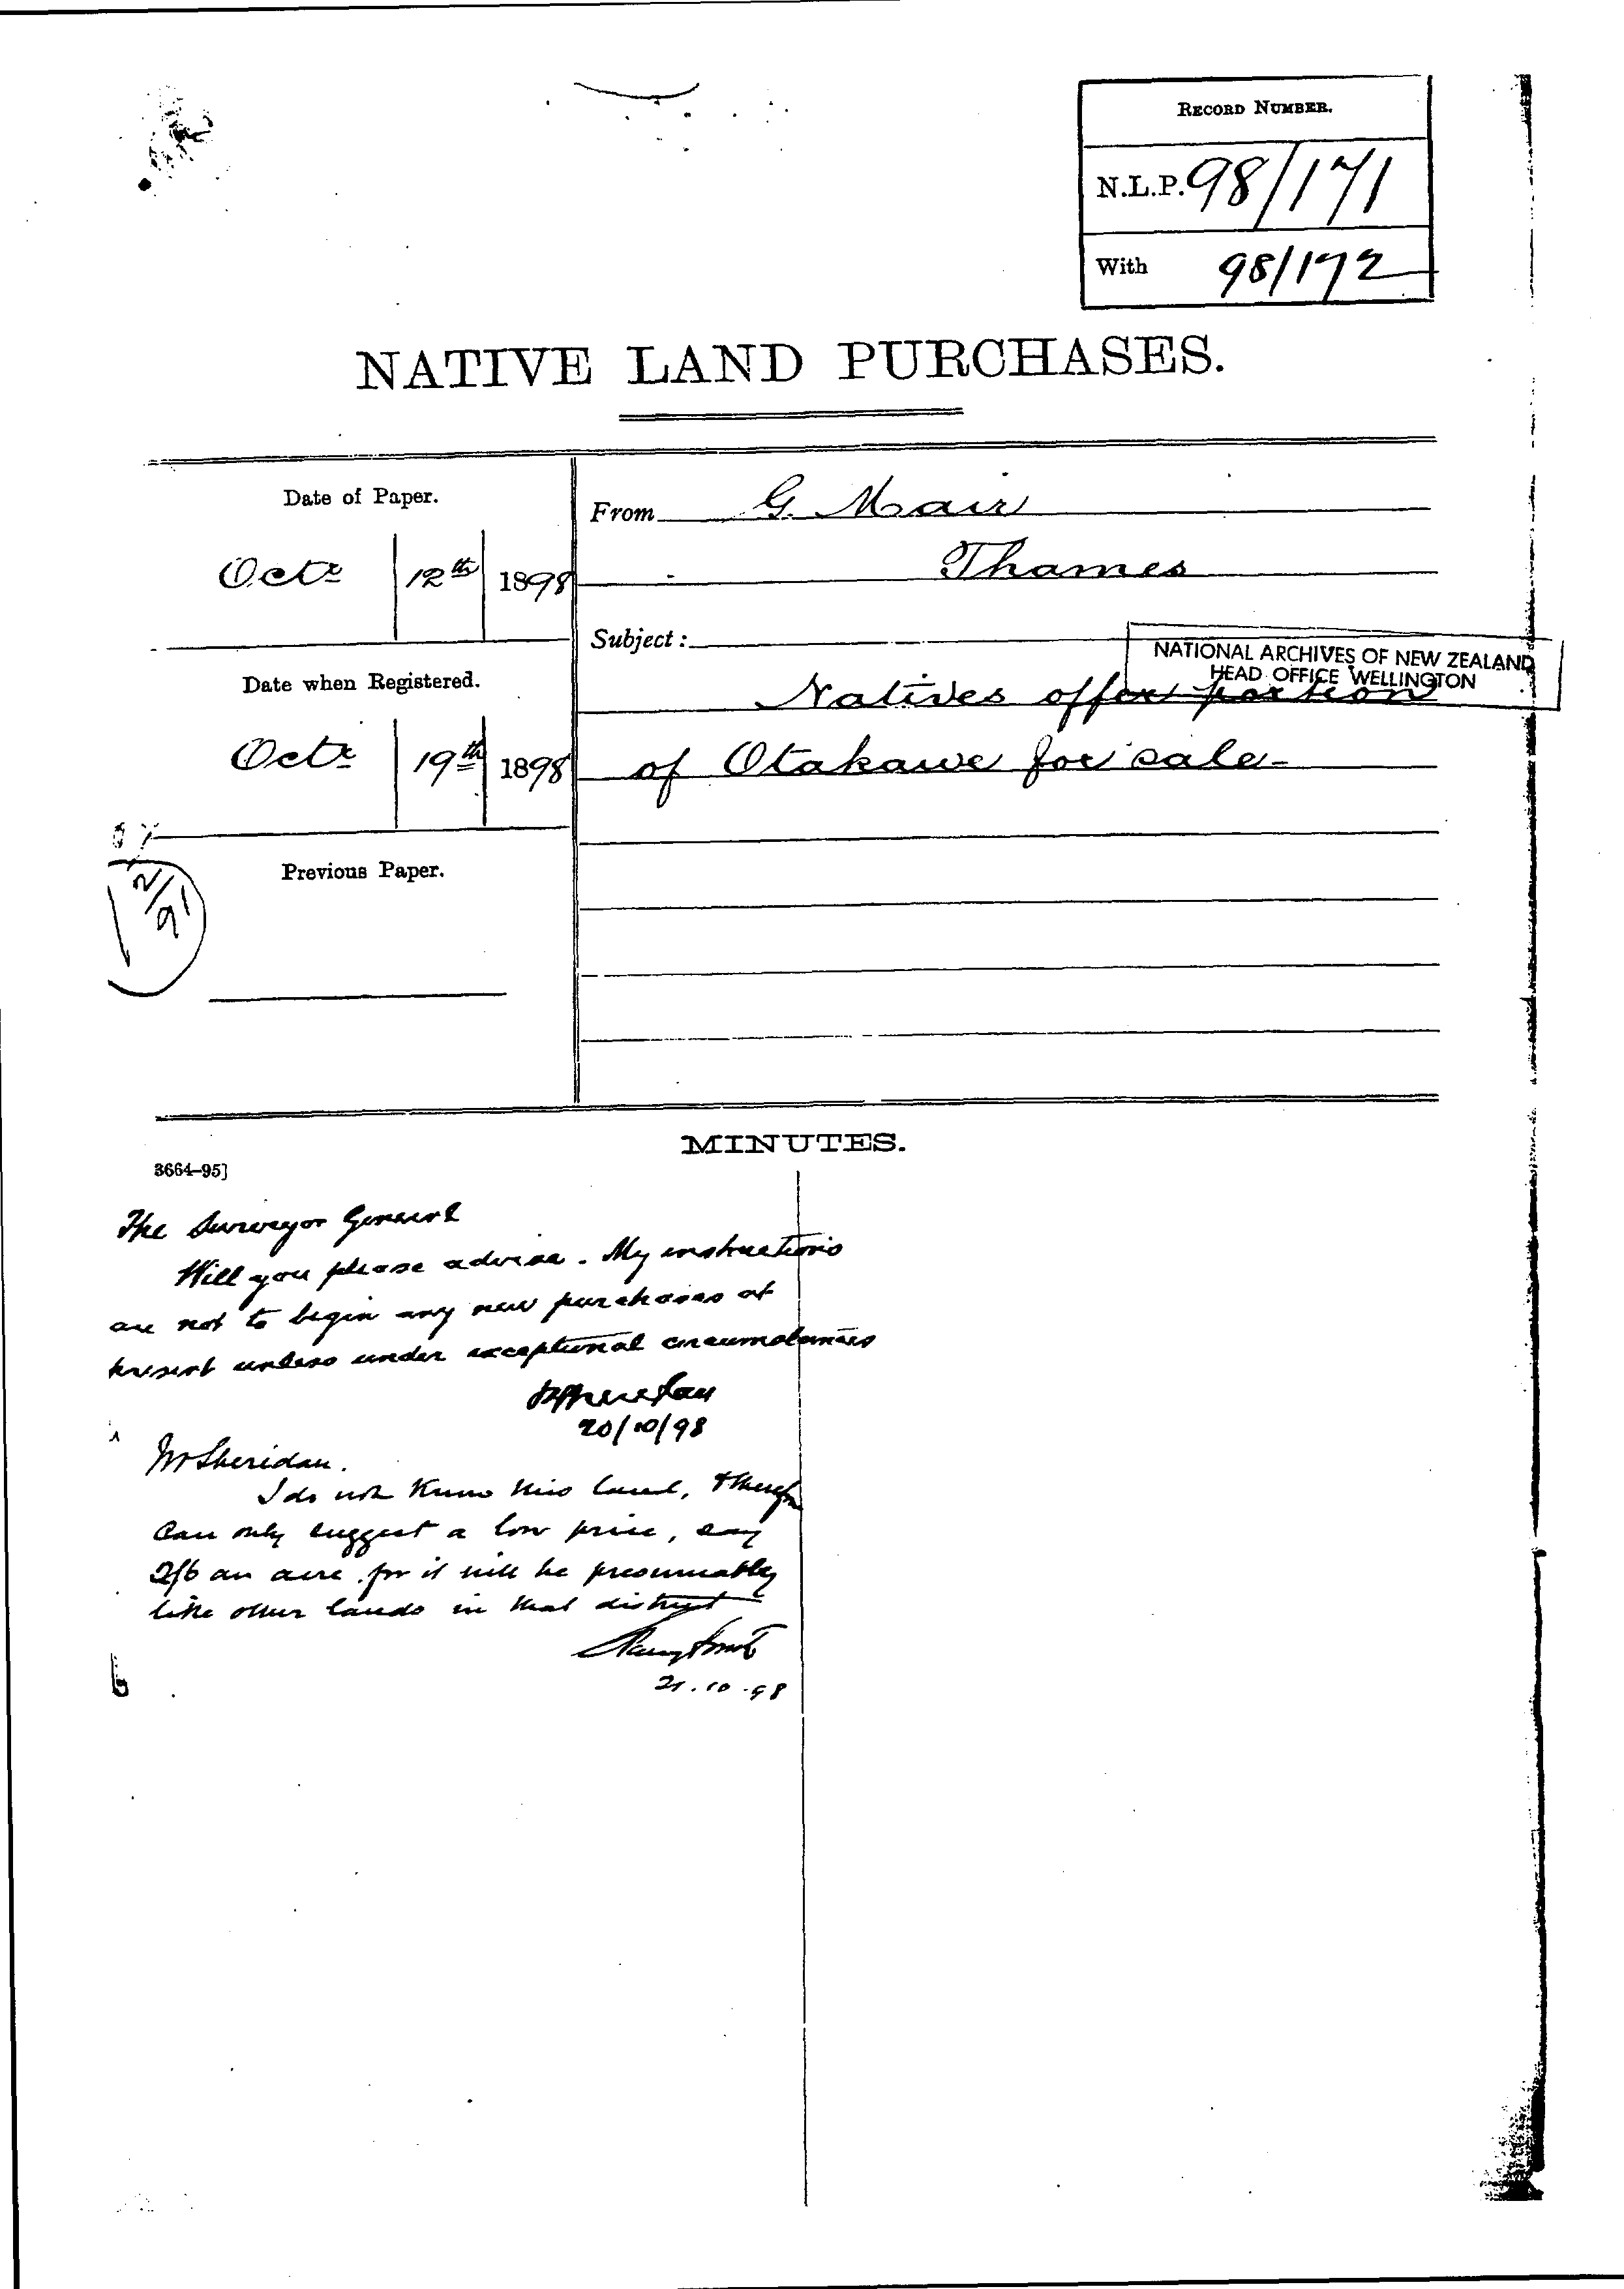 RECORD NUMBER.
N.L.P. 98/171
With 98/172
NATIVE LAND PURCHASES.
Date of Paper.
Octr 12th 1898
From G. Mair
Thames
Subject:
NATIONAL ARCHIVES OF NEW ZEALAND
HEAD OFFICE WELLINGTON
Natives offer portion
of Otakawe for sale
Date when Registered.
Octr 19th 1898
Previous Paper.
2/91
MINUTES.
3664–95]
The Surveyor General
Will you please advise. My instructions
are not to begin any new purchases at
present unless under exceptional circumstances
20/10/98
Mr Sheridan.
I do not know this land, & therefore
can only suggest a low price, say
2/6 an acre, for it will be presumably
like other lands in that district
21.10.98